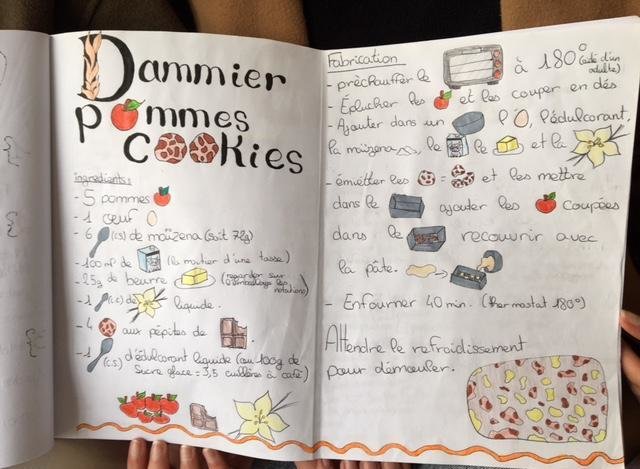 Dammier
pommes
cookies
ingrédients:
- 5 pommes
- 1 œuf
- 6 (c.s) de maïzena (soit 72g)
- 100ml de (la moitier d'une tasse)
- 25g de beurre (regarder sur l'emballage les notations)
- 1 (c.c) de liquide.
- 4 aux pépites de
- 1 (c.s) d'édulcorant liquide (ou 100g de
Sucre glace = 3,5 cuillères à café)
Fabrication
- préchauffer le à 180° (aidé d'un adulte)
- Éplucher les et les couper en dés
- Ajouter dans un l', l'édulcorant,
la maïzena, le le et la
- émietter les = et les mettre
dans le ajouter les coupées
dans le recouvrir avec
la pâte.
- Enfourner 40 min. (thermostat 180°)
Attendre le refroidissement
pour démouler.